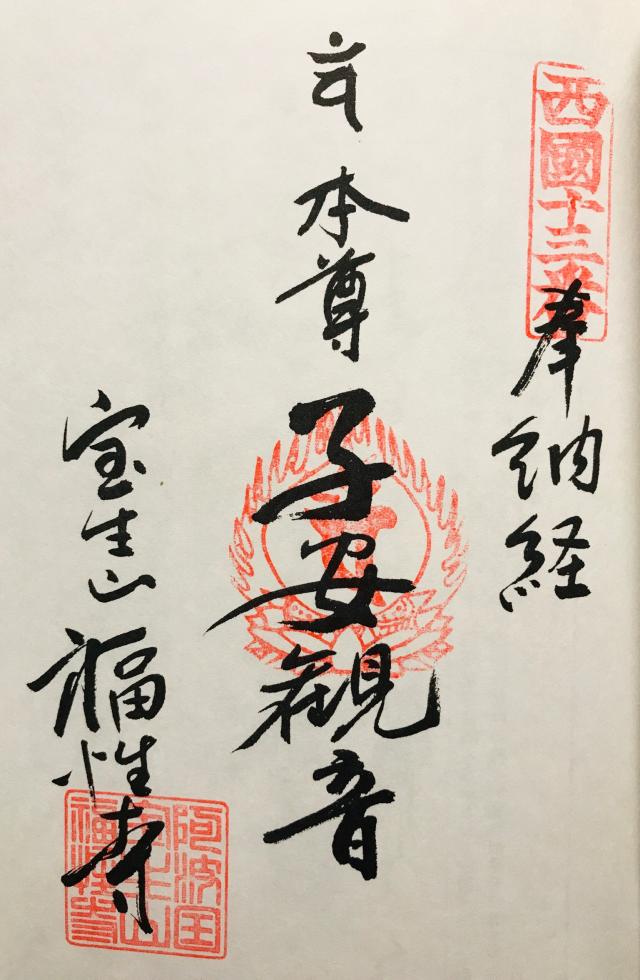 西國十三番
奉納経
本尊子安観音
宝生山福性寺
阿波国
宝生山
福性寺